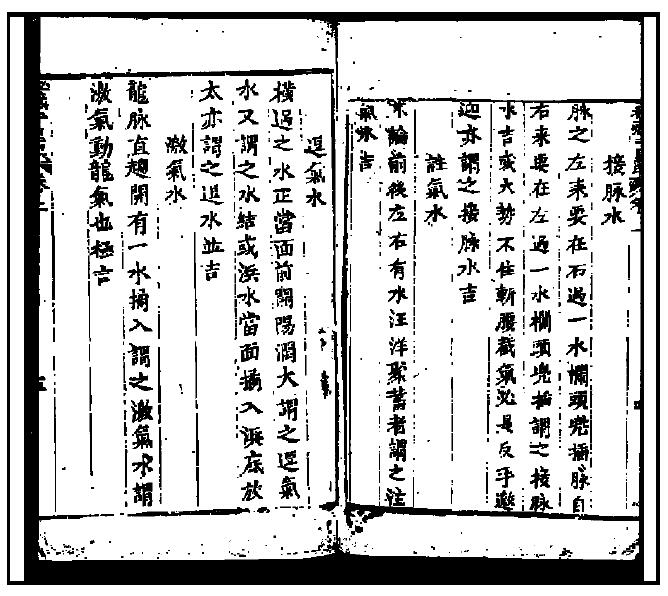 接脉水
脉之左来要在右過一水欄頭兠插脉自
右来要在左過一水欄頭兠插謂之接脉
水吉或大勢不住斬腰截氣必是反手
迎亦謂之接脉水吉
註氣水
前後左右有水汪洋聚蓄者謂之注
氣水吉
逆氣水
橫過之水正當面前開陽濶大謂之逆氣
水又謂之水結或浜水當面插入浜底放
太亦謂之逆水並吉
激氣水
龍脉直趨開有一水插入謂之激氣水謂
激氣動龍氣也極吉